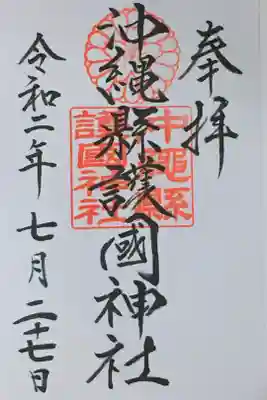 奉拝
沖縄縣護國神社
沖縄縣
護國神社
令和二年七月二十七日